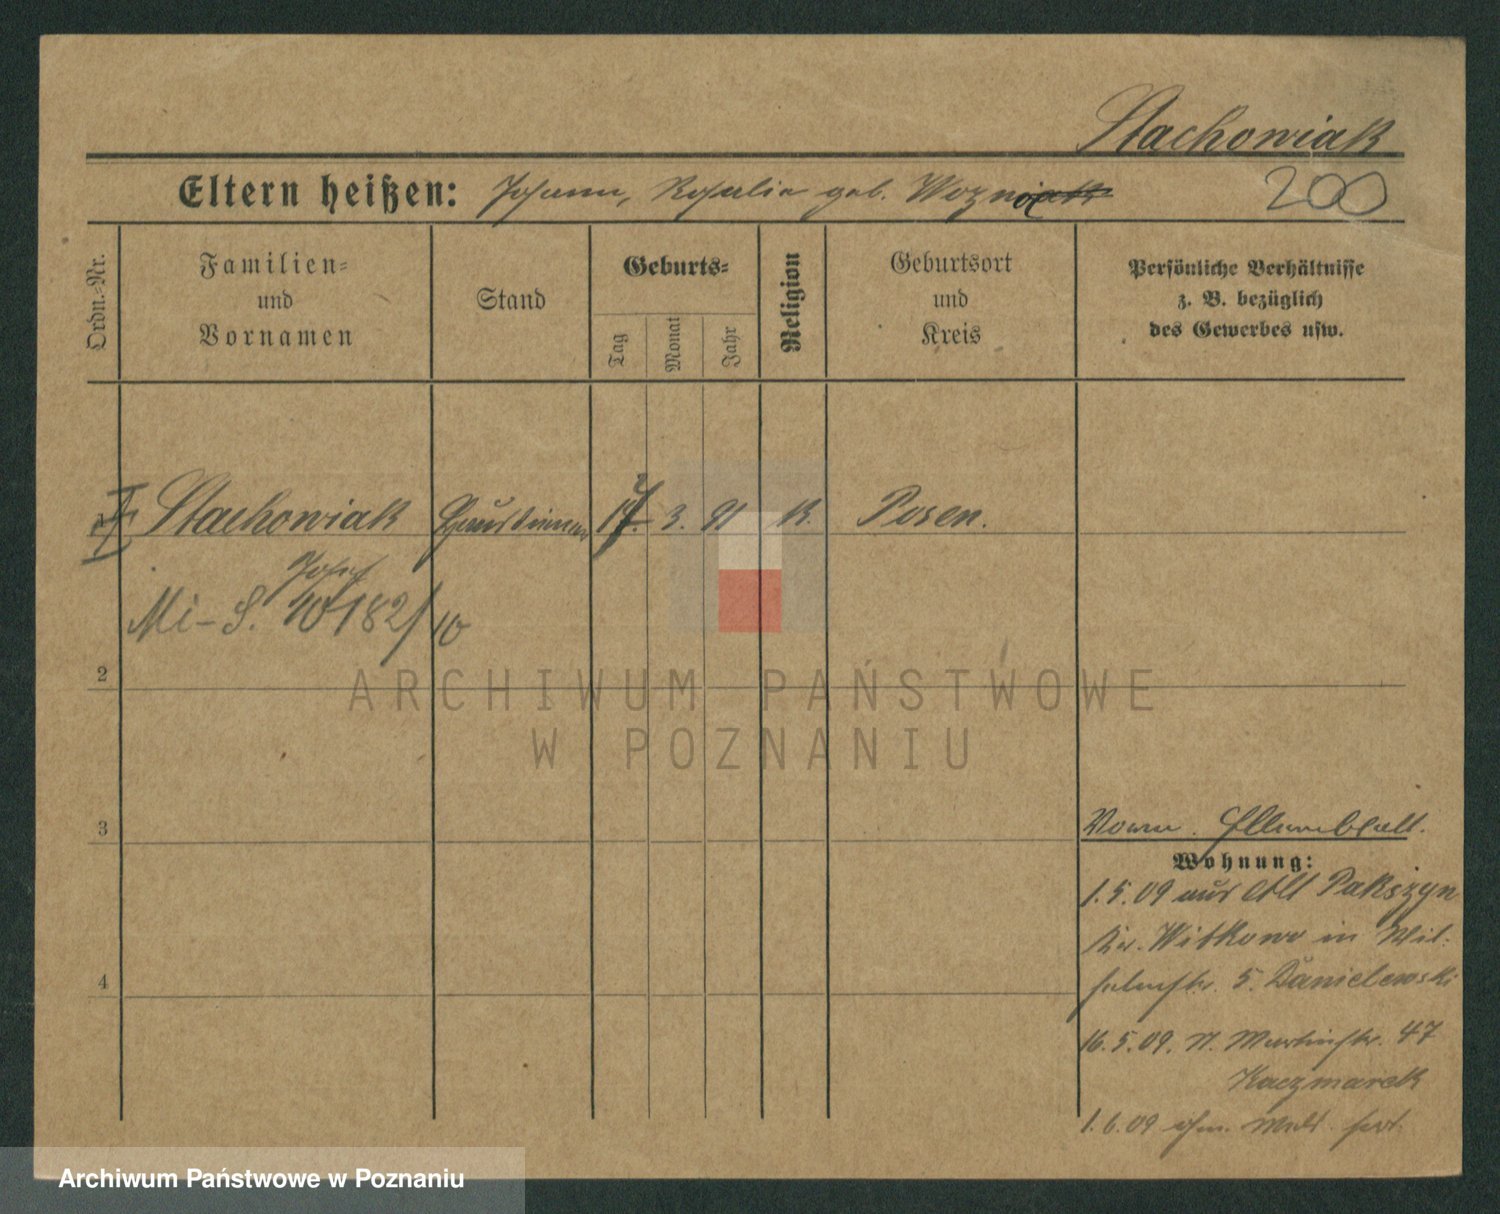 Stachowiak
Eltern heißen: Johann, Rosalie geb. Wozniak
200
Ordn.-Nr.
Familien-
und
Vornamen
Stand
Geburts-
Tag
Monat
Jahr
Religion
Geburtsort
und
Kreis
Persönliche Verhältnisse
z. B. bezüglich
des Gewerbes usw.
Stachowiak
Hausdiener
17. 3. 91
K.
Posen.
Josef
Mi-S. 10182/10
2
ARCHIWUM PAŃSTWOWE
W POZNANIU
3
Elternblatt.
Wohnung:
1.5.09 aus Alt Pakszyn
Kr. Witkowo in Wil-
helmstr. 5. Danielewski
16.5.09. St. Martinstr. 47
Kaczmarek
4
1.6.09 ohne Meld. fort.
Archiwum Państwowe w Poznaniu